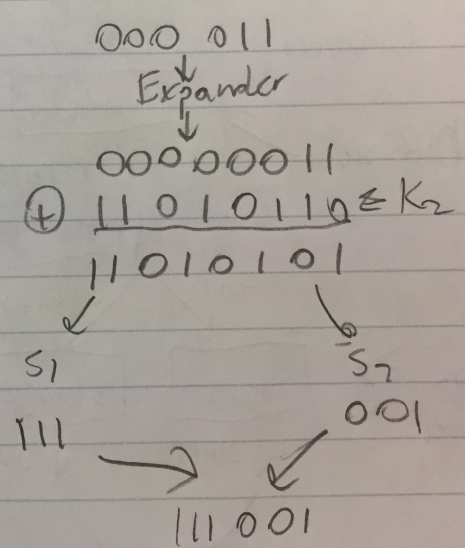 000 011
Expander
00000011
⊕ 11010110 ≤ K2
11010101
S1 S2
111 001
111 001